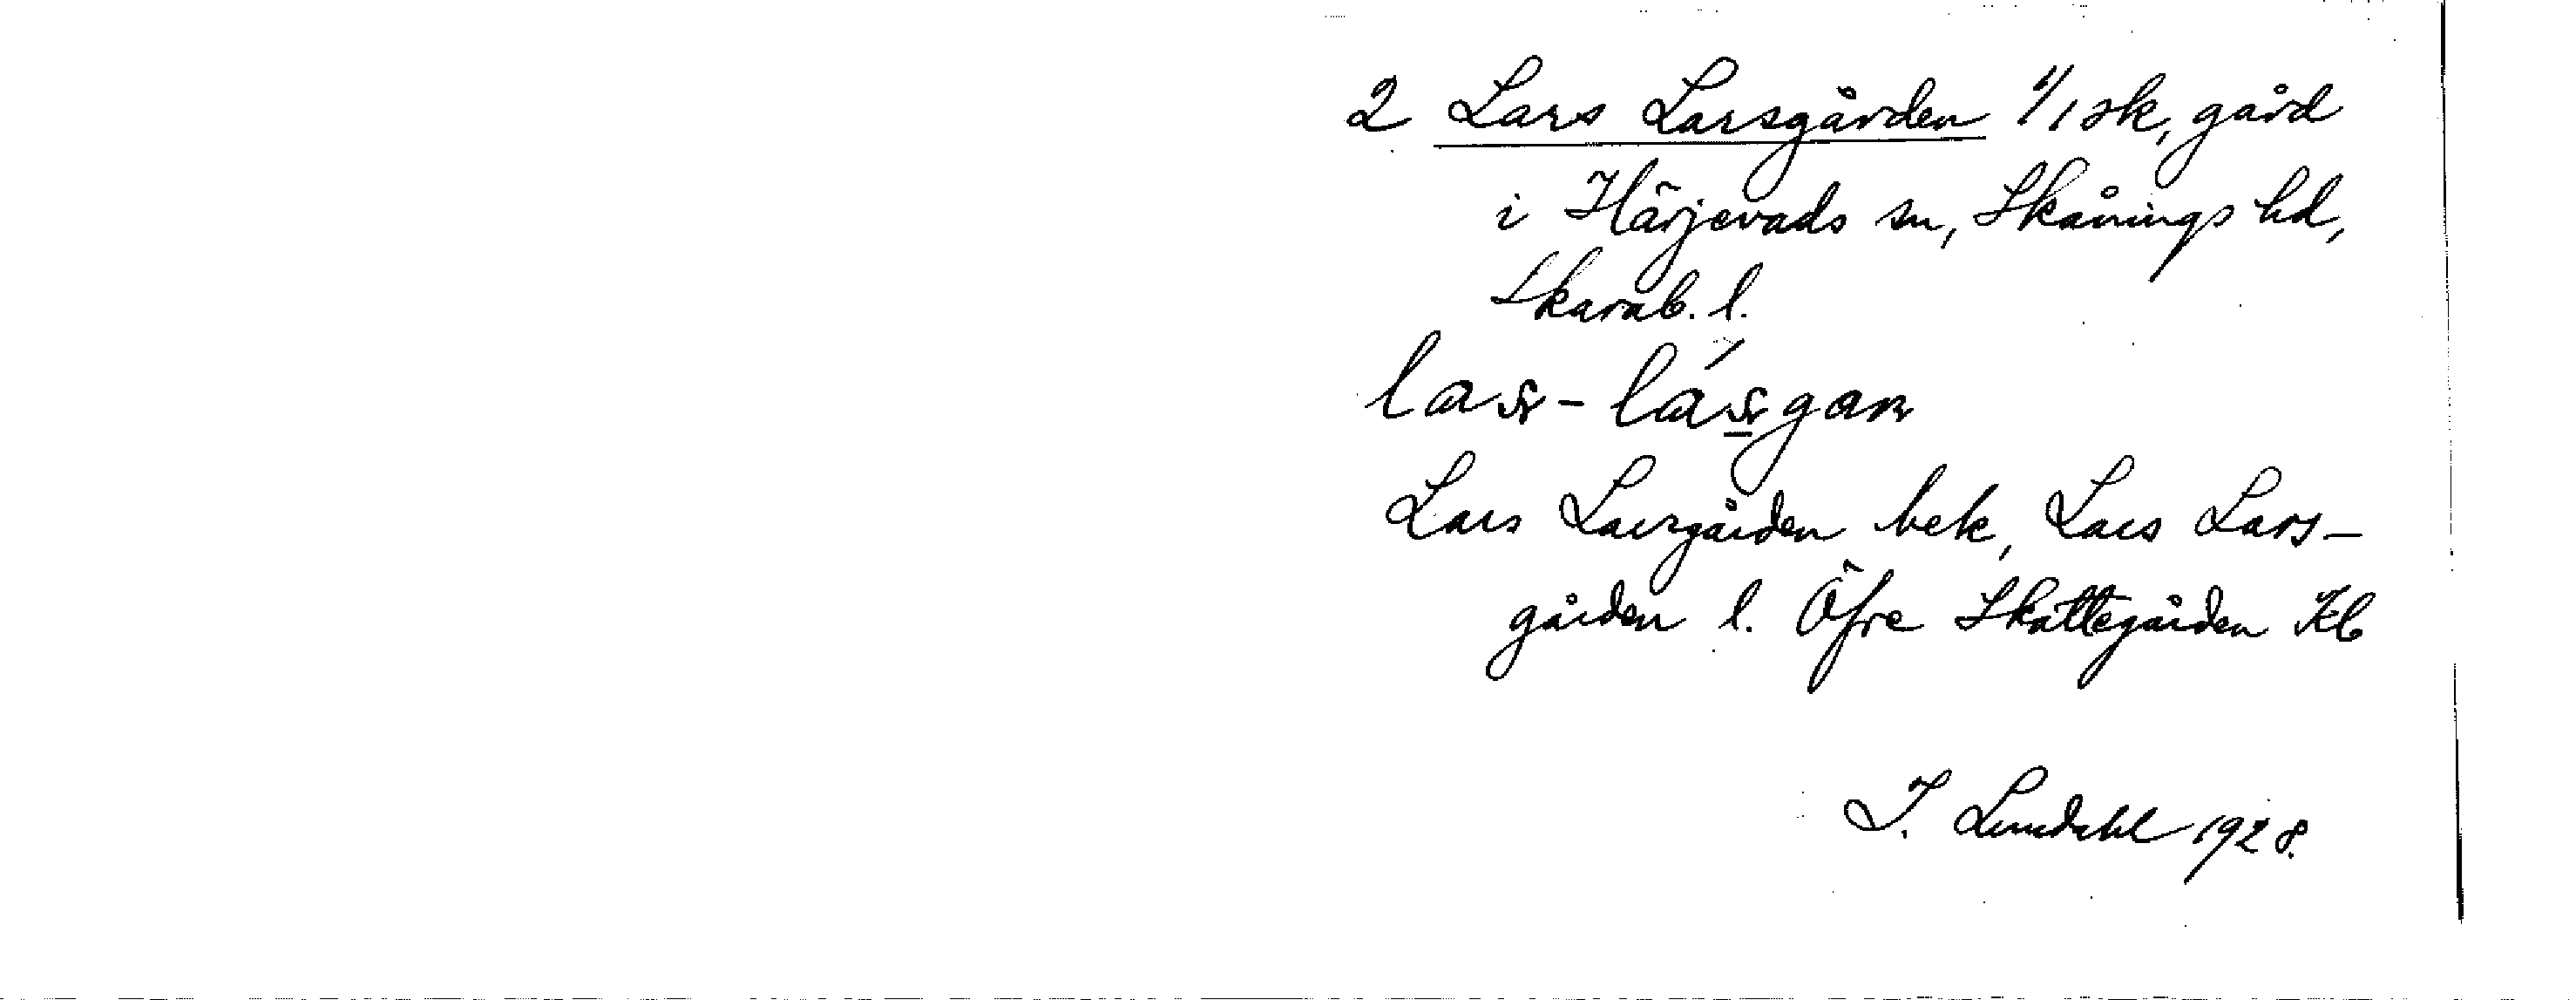 2 Lars Larsgården 1/1 sk, gård
i Härjevads sn, Skånings hd,
Skarab. l.
Lars Larsgården bek, Lars Lars-
gården l. Öfre Skattegården Kb
I. Lundahl 1928.